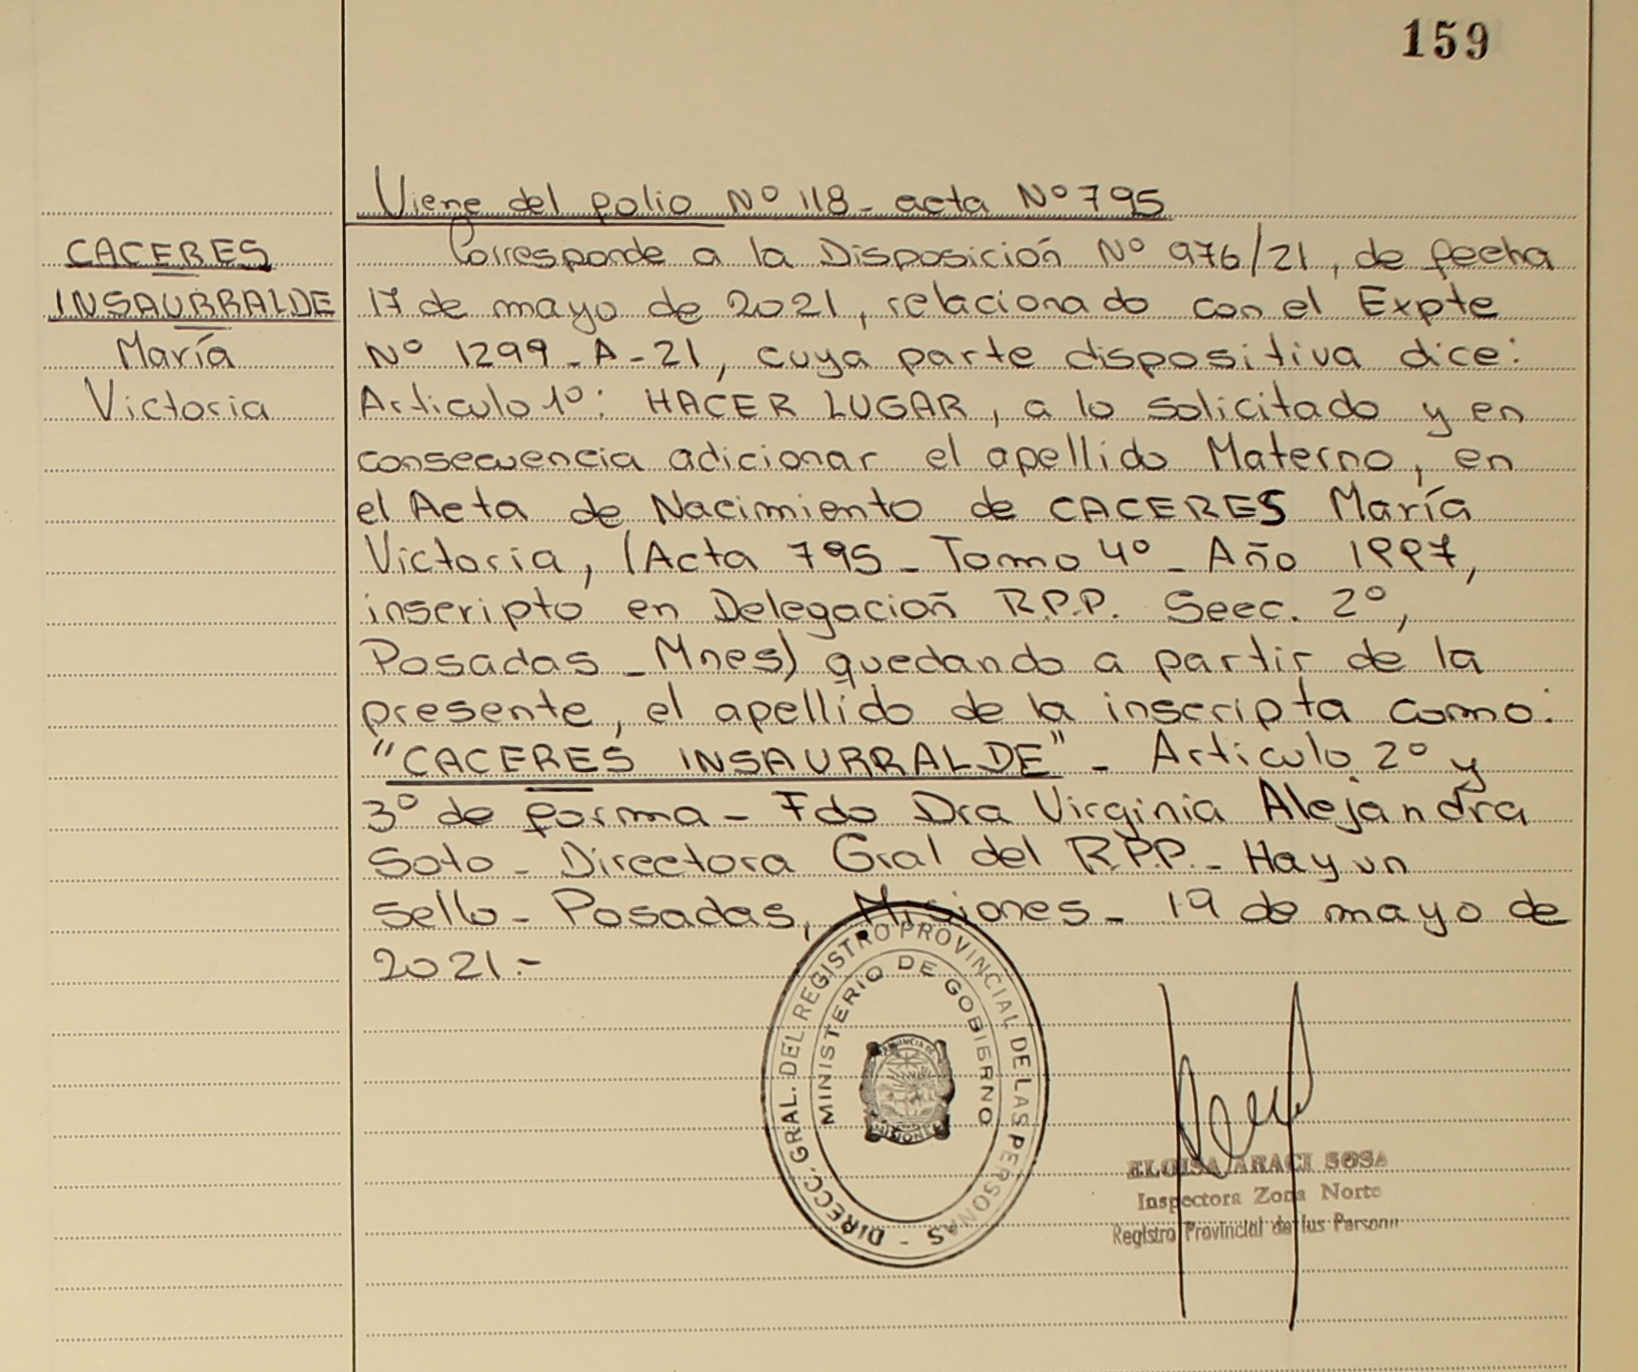 159
Viene del folio Nº 118 - acta Nº 795
CACERES
INSAURRALDE
María
Victoria
Corresponde a la Disposición Nº 976/21, de fecha
17 de mayo de 2021, relacionado con el Expte
Nº 1299-A-21, cuya parte dispositiva dice:
Articulo 1º: HACER LUGAR, a lo solicitado y en
consecuencia adicionar el apellido Materno, en
el Acta de Nacimiento de CACERES María
Victoria, (Acta 795 - Tomo 4º - Año 1997,
inscripto en Delegación R.P.P. Secc. 2º,
Posadas - Mnes) quedando a partir de la
presente, el apellido de la inscripta como:
"CACERES INSAURRALDE" - Articulo 2º y
3º de forma - Fdo Dra Virginia Alejandra
Soto - Directora Gral del R.P.P. - Hay un
sello - Posadas, Misiones - 19 de mayo de
2021.-
DIRECC. GRAL. DEL REGISTRO PROVINCIAL DE LAS PERSONAS -
MINISTERIO DE GOBIERNO
PROVINCIA DE
MISIONES
ELOISA ARACI SOSA
Inspectora Zona Norte
Registro Provincial de las Person